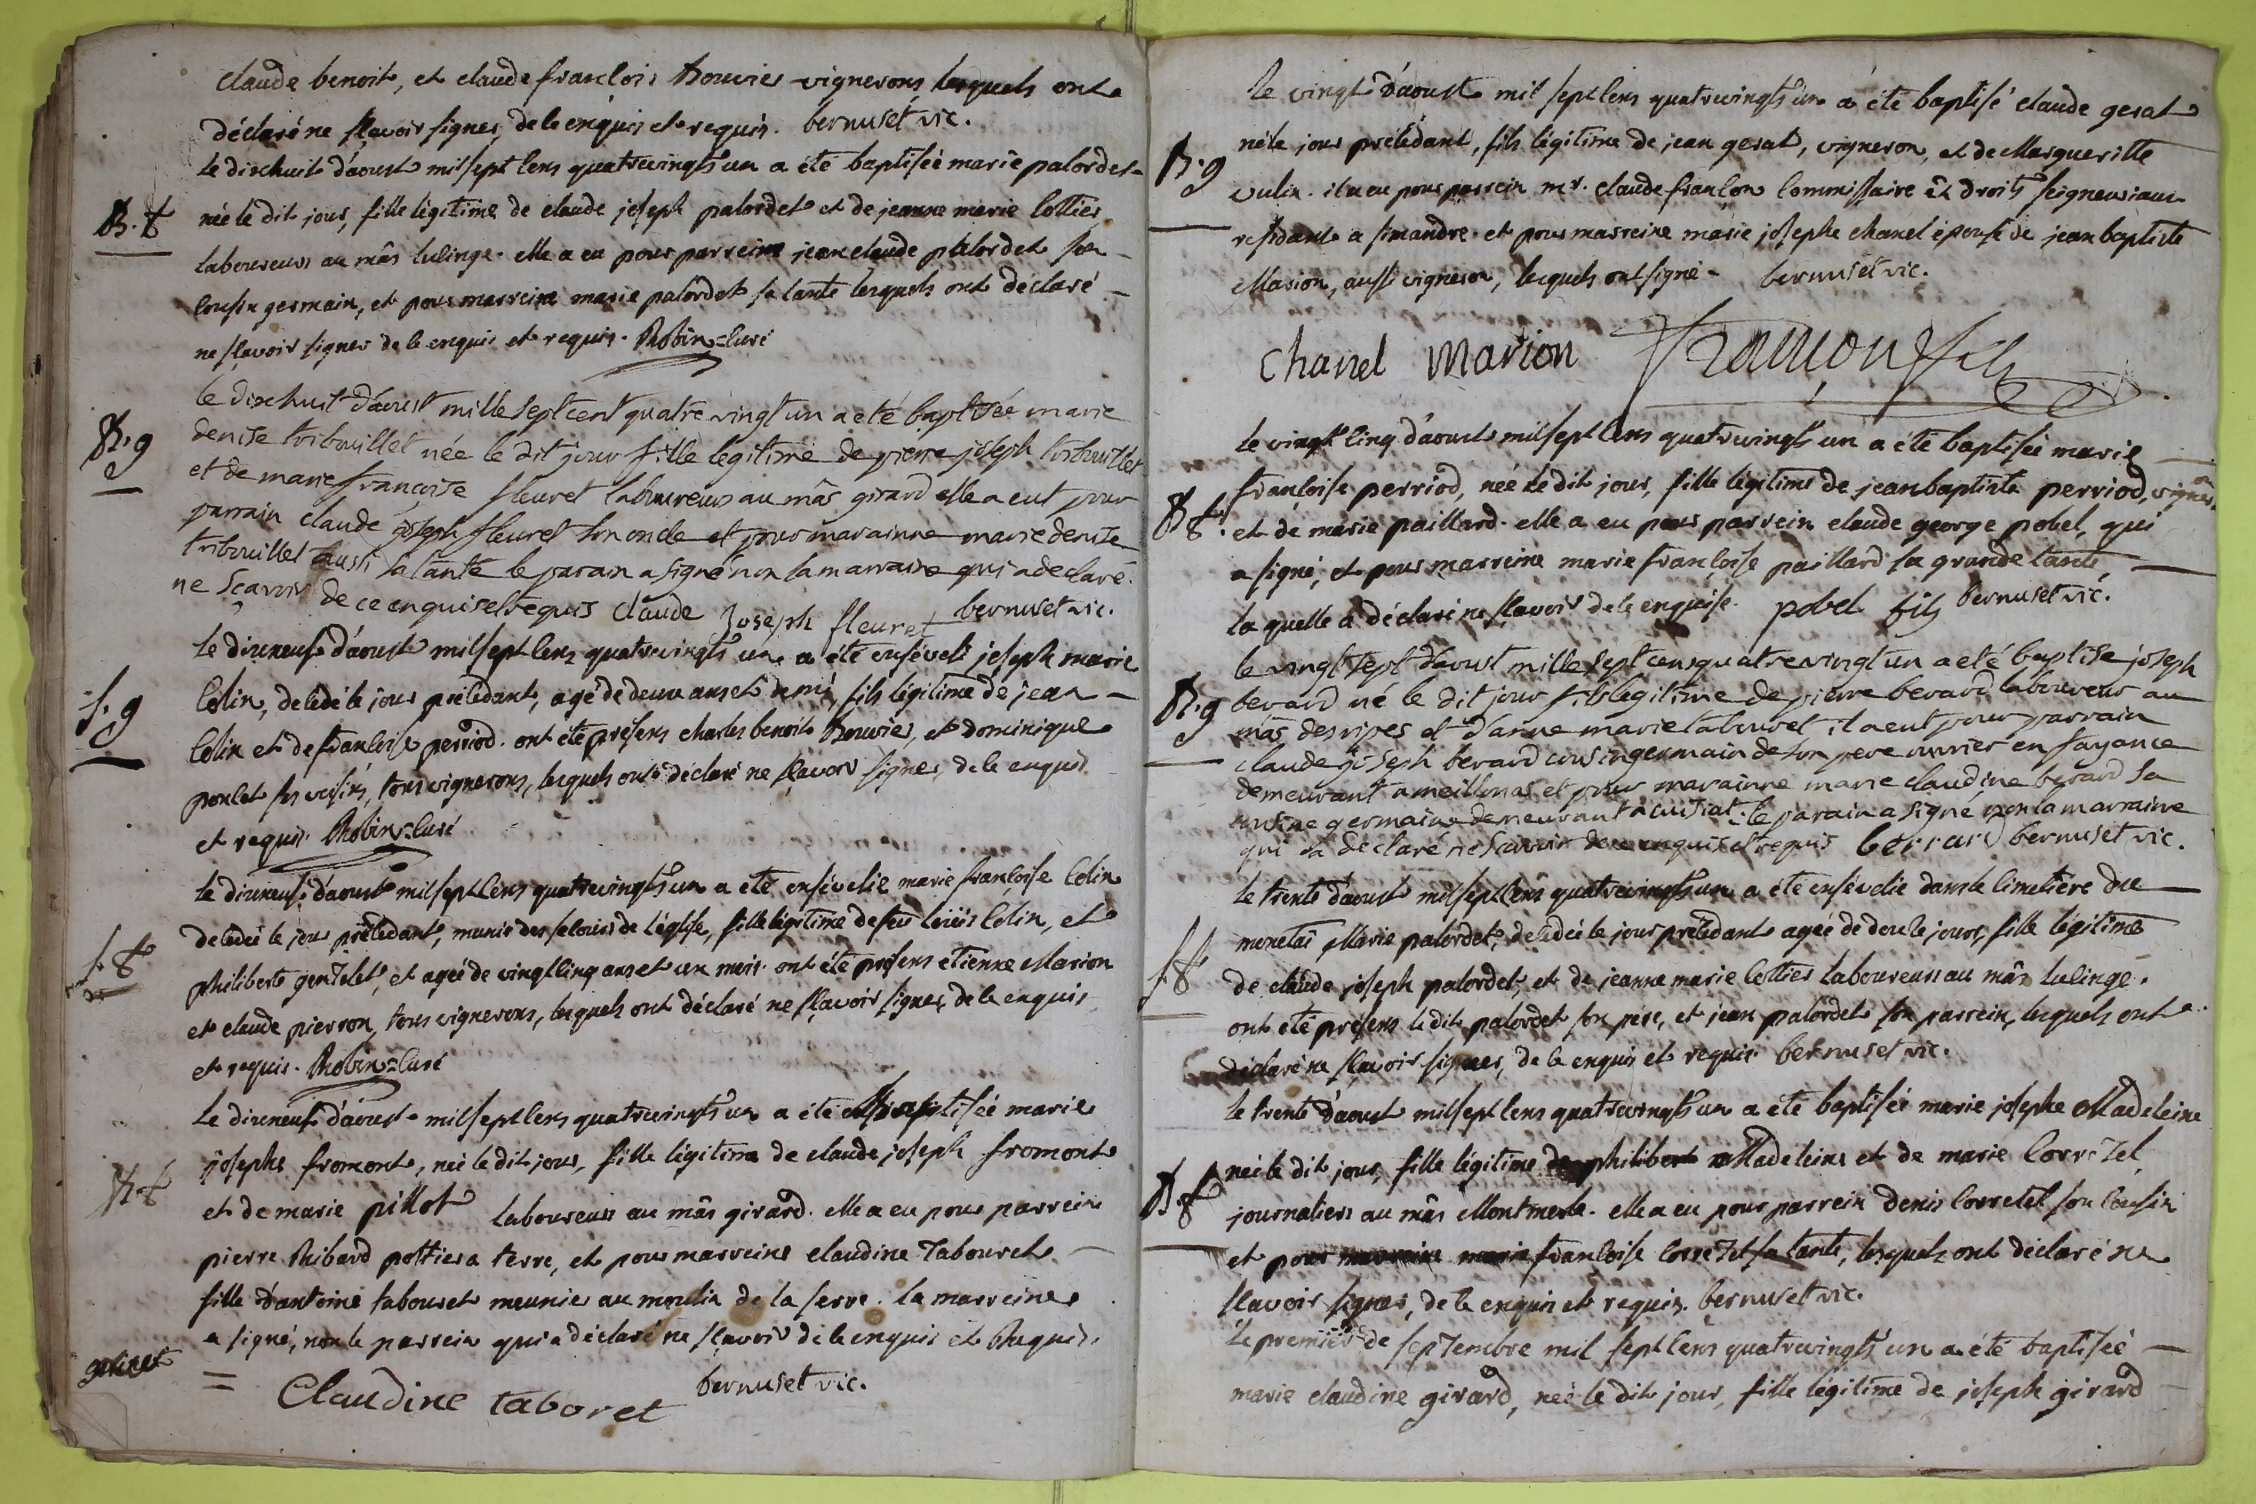 claude benoit, et claude francois bouvier vignerons lesquels ont
déclaré ne sçavoir signer, de ce enquis et requis. bernuset vic.
le dixhuit d'aoust mil sept cens quatrevingts un a été baptisée marie palordet
B. f
née le dit jour, fille légitime de claude joseph palordet et de jeanne marie cottier
laboureurs au mâs lulinge. elle a eu pour parrein jean claude palordet son
cousin germain, et pour marreine marie palordet sa tante lesquels ont déclaré
ne sçavoir signer de ce enquis et requis. Robin curé
le dixhuit d'aoust mille sept cent quatre vingt un a été baptisée marie
B. g
denise tribouillet née le dit jour fille legitime de pierre joseph tribouillet
et de marie françoise fleuret laboureurs au mâs girard elle a eut pour
parrain claude joseph fleuret son oncle et pour marainne marie denise
tribouillet aussi sa tante le parain a signé non la marraine qui a declaré
ne sçavoir de ce enquise et requis claude joseph fleuret bernuset vic.
le dixneuf d'aoust mil sept cens quatrevingts un a été enséveli joseph marie
S. g
Colin, decedé le jour précédant, agé de deux ans et demi, fils légitime de jean
Colin et de francoise perriod. ont été présens charles benoit bouvier, et dominique
poncet ses voisins, tous vignerons, lesquels ont déclaré ne sçavoir signer, de ce enquis
et requis. Robin curé
le dixneuf d'aoust mil sept cens quatrevingts un a été ensévelie marie francoise Colin
S. f
decedée le jour précédant, munie des secours de l'église, fille légitime de feu loüis Colin, et
philiberte gentelet, et agée de vingt cinq ans et un mois. ont été présens etienne Marion
et claude pierron, tous vignerons, lesquels ont déclaré ne sçavoir signer, de ce enquis
et requis. Robin curé
le dixneuf d'aoust mil sept cens quatrevingts un a été baptisée marie
B. f
josephe fromont, née le dit jour, fille légitime de claude joseph fromont
et de marie pillot laboureurs au mâs girard. elle a eu pour parrein
pierre Ribard pottier a terre, et pour marreine claudine Tabouret
fille d'antoine tabouret meunier au moulin de la serve. la marreine
a signé, non le parrein qui a déclaré ne sçavoir de ce enquis et Requis.
= Claudine taboret bernuset vic.
le vingt d'aoust mil sept cens quatrevingts un a été baptisé claude gerat
B. g
né le jour précédant, fils légitime de jean gerat, vigneron, et de Margueritte
vulin. il a eu pour parrein mr. claude françon Commissaire ez droits seigneuriaux
résidant a simandre. et pour marreine marie josephe chanel épouse de jean baptiste
Marion, aussi vigneron, lesquels ont signé. bernuset vic.
chanel marion françon fils
le vingt cinq d'aoust mil sept cens quatrevingts un a été baptisée marie
B. f.
francoise perriod, née le dit jour, fille légitime de jean baptiste perriod, vigneron
et de marie paillard. elle a eu pour parrein claude george pobel, qui
a signé, et pour marreine marie françoise paillard sa grande tante,
la quelle a déclaré ne sçavoir de ce enquise. pobel fils bernuset vic.
le vingt sept d'aoust mille sept cens quatre vingt un a eté baptise joseph
B. g
berard né le dit jour fils legitime de pierre berard laboureur au
mâs des ripes et d'anne marie tabouret il a eut pour parrain
claude joseph berard cousin germain de son pere ouvrier en fayance
demeurant a meillonas et pour marainne marie claudine berard sa
cousine germaine demeurant a cuisiat. le parain a signé non la marraine
qui a déclaré ne sçavoir de ce enquise et requis berrard bernuset vic.
le trente d'aoust mil sept cens quatrevingts un a été ensévelie dans le cimetière du
S. f
Marie palordet, decedée le jour précédant agée de douze jours, fille légitime
de claude joseph palordet, et de jeanne marie Cottier laboureurs au mâs lulinge.
ont été présens le dit palordet son pere, et jean palordet son parrein, lesquels ont
déclaré ne sçavoir signer, de ce enquis et requis. bernuset vic.
le trente d'aoust mil sept cens quatrevingts un a été baptisée marie josephe Madeleine
B. f
née le dit jour, fille légitime de philibert Madeleine et de marie Corretel
journaliers au mâs Montmerle. elle a eu pour parrein denis Corretel son Cousin
et pour marreine marie francoise Corretel sa tante, lesquels ont déclaré ne
sçavoir signer, de ce enquis et requis. bernuset vic.
le premier de septembre mil sept cens quatrevingts un a été baptisée
marie claudine girard, née le dit jour, fille légitime de joseph girard